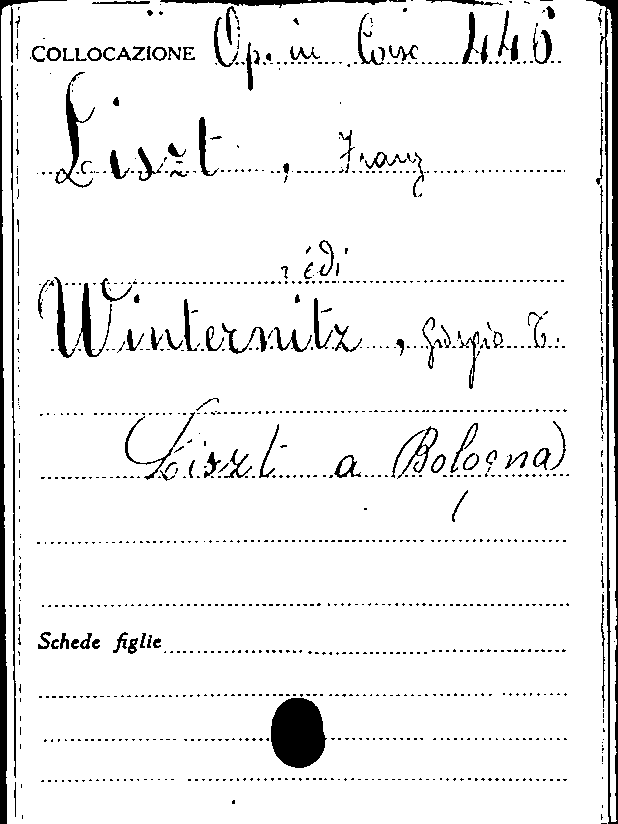 COLLOCAZIONE Op. in Coisc 446
Liszt, Franz
vedi
Winternitz, Giorgio T.
Liszt a Bologna
Schede figlie